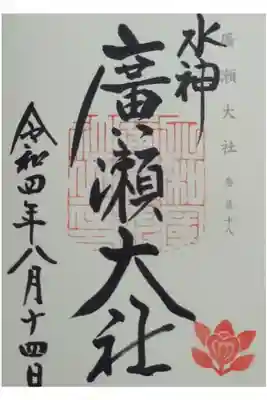 廣瀬大社
水神
廣瀬大社
令和四年八月十四日